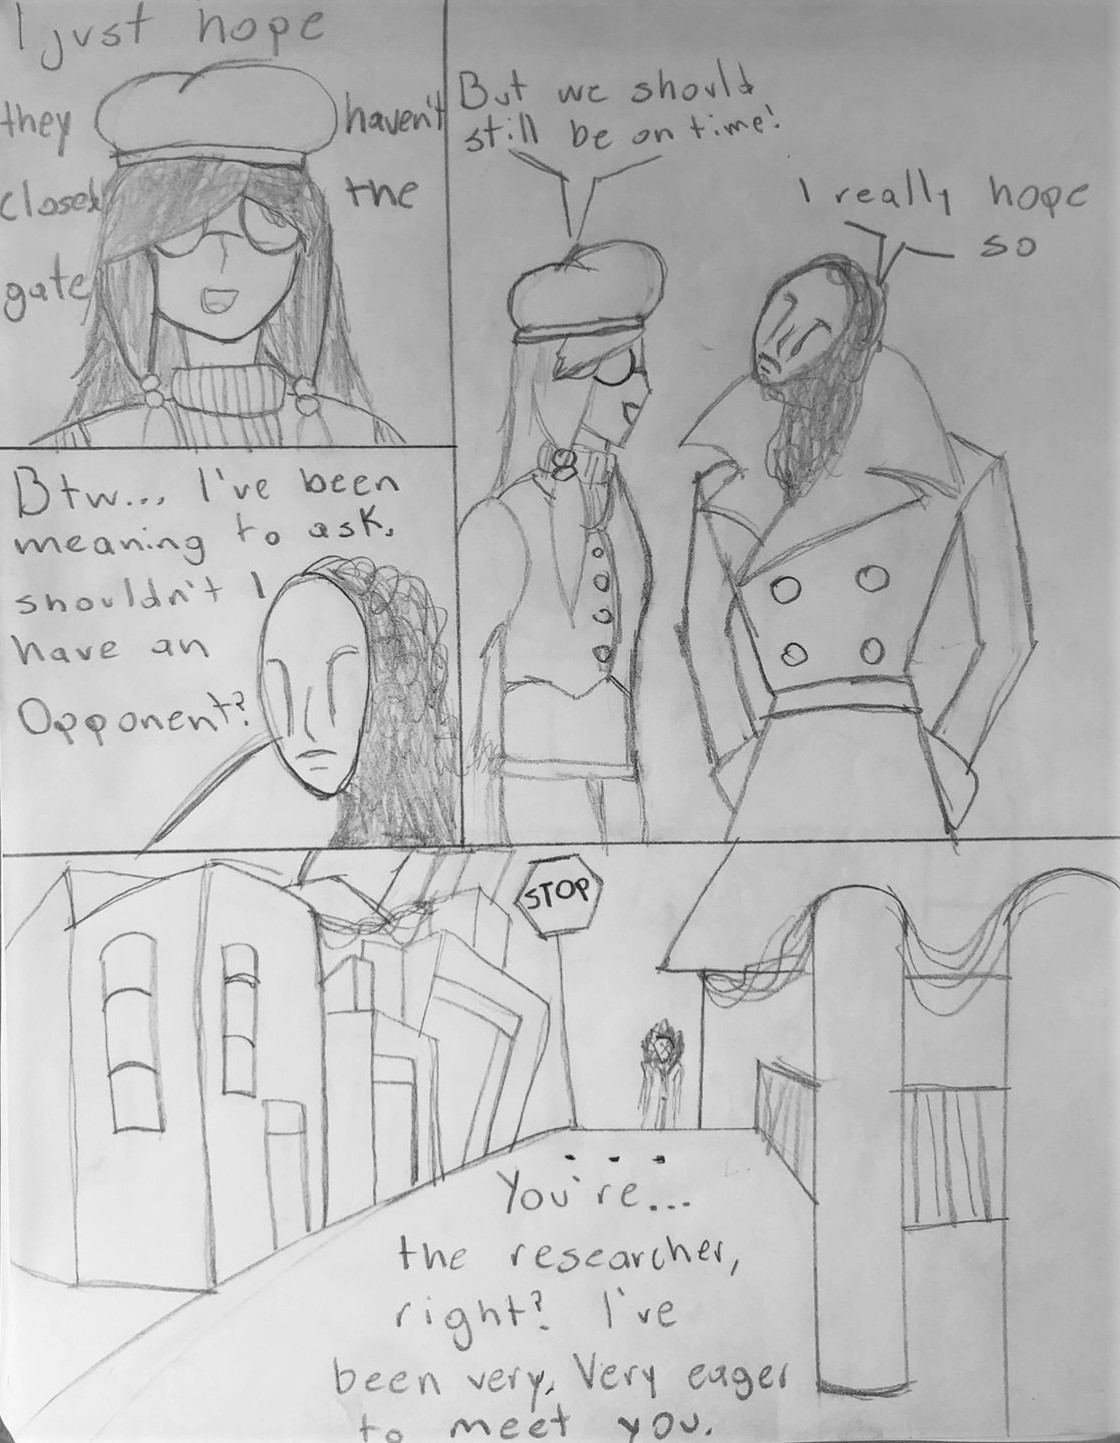 I just hope
they haven't
closed the
gate
But we should
still be on time!
I really hope
so
Btw... I've been
meaning to ask,
shouldn't I
have an
Opponent?
STOP
...
You're...
the researcher,
right? I've
been very, Very eager
to meet you.